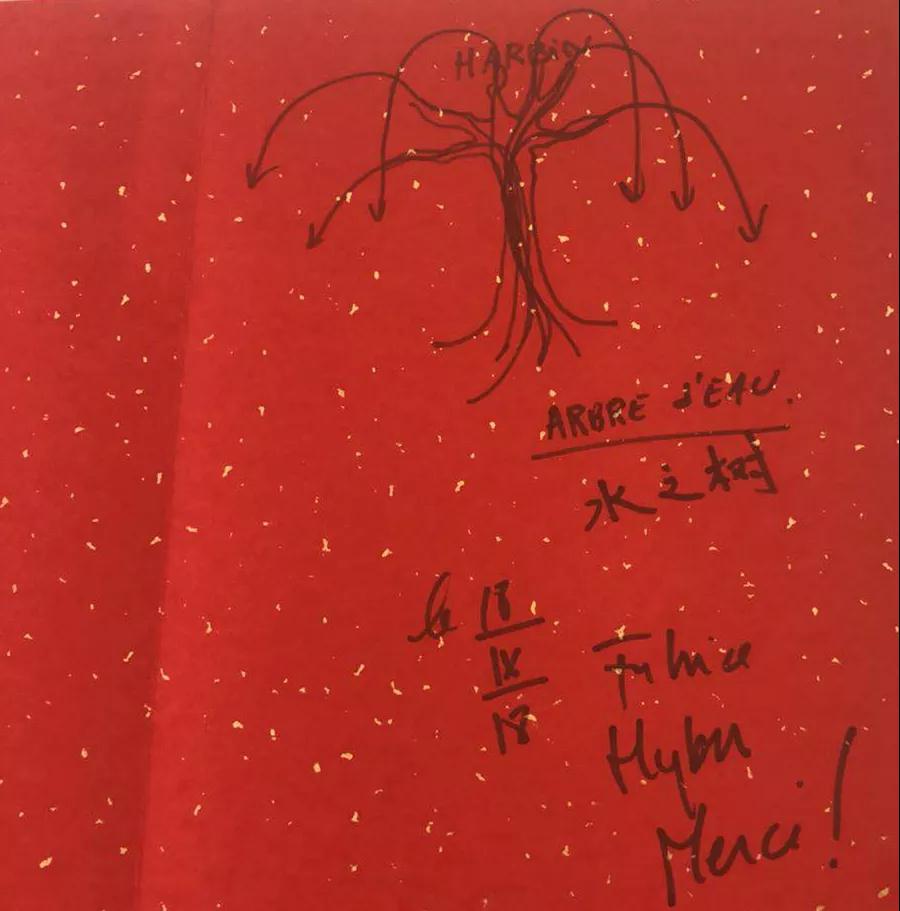 HARBIN
ARBRE d'EAU.
水之树
le 18
IX
18
Fabrice
Hyber
Merci!